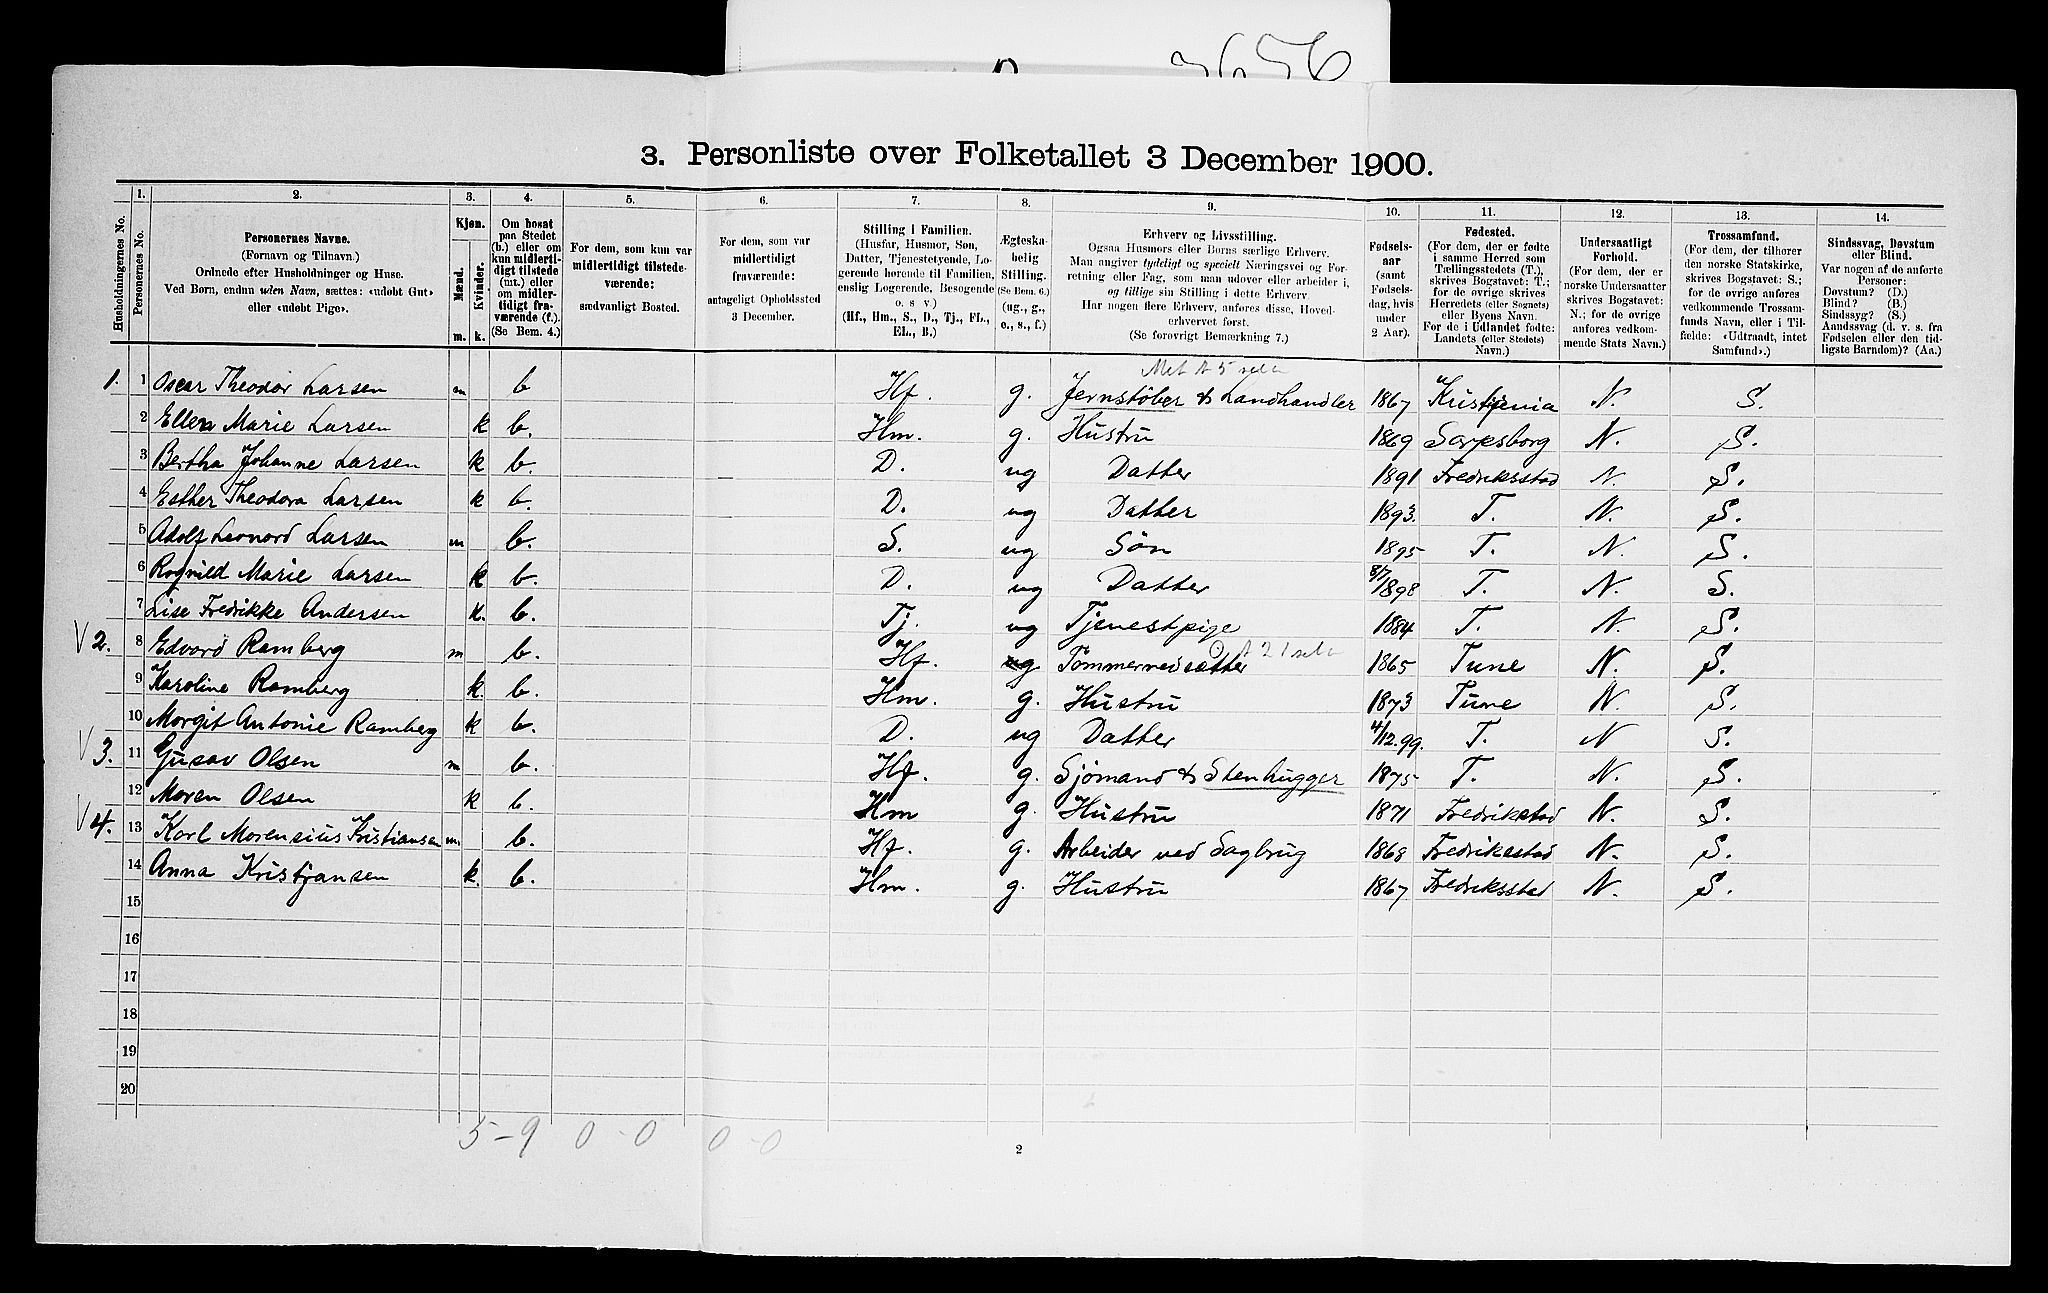 3656
3. Personliste over Folketallet 3 December 1900.
Husholdningernes No.
1. Personernes No.
2. Personernes Navne.
(Fornavn og Tilnavn.)
Ordnede efter Husholdninger og Huse.
Ved Børn, endnu uden Navn, sættes: «udøbt Gut»
eller «udøbt Pige».
3. Kjøn.
Mænd. m.
Kvinder. k.
4. Om bosat
paa Stedet
(b.) eller om
kun midlerti-
digt tilstede
(mt.) eller
om midler-
tidigt fra-
værende (f.)
(Se Bem. 4.)
5. For dem, som kun var
midlertidigt tilstede-
værende:
sædvanligt Bosted.
6. For dem, som var
midlertidigt
fraværende:
antageligt Opholdssted
3 December.
7. Stilling i Familien.
(Husfar, Husmor, Søn,
Datter, Tjenestetyende, Lo-
gerende hørende til Familien,
enslig Logerende, Besøgende
o. s v.)
(Hf., Hm., S., D., Tj., FL.,
EL., B.)
8. Ægteska-
belig
Stilling.
(Se Bem. 6.)
(ug., g.,
e., s., f.)
9. Erhverv og Livsstilling.
Ogsaa Husmors eller Børns særlige Erhverv.
Man angiver tydeligt og specielt Næringsvei og For-
retning eller Fag, som man udøver eller arbeider i,
og tillige sin Stilling i dette Erhverv.
Har nogen flere Erhverv, anføres disse, Hoved-
erhvervet først.
(Se forøvrigt Bemærkning 7.)
10. Fødsels-
aar
(samt
Fødsels-
dag, hvis
under
2 Aar).
11. Fødested.
(For dem, der er fødte
i samme Herred som
Tællingsstedets (T.),
skrives Bogstavet: T.;
for de øvrige skrives
Herredets (eller Sognets)
eller Byens Navn.
For de i Udlandet fødte:
Landets (eller Stedets)
Navn.)
12. Undersaatligt
Forhold.
(For dem, der er
norske Undersaatter
skrives Bogstavet:
N.; for de øvrige
anføres vedkom-
mende Stats Navn.)
13. Trossamfund.
(For dem, der tilhører
den norske Statskirke,
skrives Bogstavet: S.;
for de øvrige anføres
vedkommende Trossam-
funds Navn, eller i Til-
fælde: «Udtraadt, intet
Samfund».)
14. Sindssvag, Døvstum
eller Blind.
Var nogen af de anførte
Personer:
Døvstum? (D.)
Blind? (B.)
Sindssyg? (S.)
Aandssvag (d. v. s. fra
Fødselen eller den tid-
ligste Barndom)? (Aa.)
1. 1 Oscar Theodor Larsen m b Hf. g. Jernstøber & Landhandler 1867 Kristjenia N. S.
2 Ellen Marie Larsen k b. Hm. g. Hustru 1869 Sarpsborg N. S.
3 Bertha Johanne Larsen k b. D. ug Datter 1891 Fredriksstad N. S.
4 Esther Theodora Larsen k b. D. ug Datter 1893. T. N. S.
5 Adolf Leonard Larsen m b. S. ug Søn 1895 T. N. S.
6 Ragnild Marie Larsen k b. D. ug Datter 8/7 1898 T. N. S.
7 Lise Fredrikke Andersen k. b. Tj. ug Tjenestpige 1884 T. N. S.
V 2. 8 Edvard Ramberg m b. Hf. g Tømmernedsætter 1865 Tune N. S.
9 Karoline Ramberg k. b. Hm. g. Hustru 1873 Tune N. S.
10 Margit Antonie Ramberg k b. D. ug Datter 4/12.99. T. N S.
V 3. 11 Gusav Olsen m b. Hf. g. Sjømand & Stenhugger 1875 T. N. S.
12 Maren Olsen k b. Hm g. Hustru 1871 Fredrikstad N. S.
V 4. 13 Karl Morensius Kristiansen m. b. Hf. g. Arbeider ved Sagbrug 1868 Fredrikstad N. S.
14 Anna Kristjansen k. b. Hm. g. Hustru 1867 Fredriksstad N. S.
15
16
17
18
19
20
5-9 0-0 0-0
2